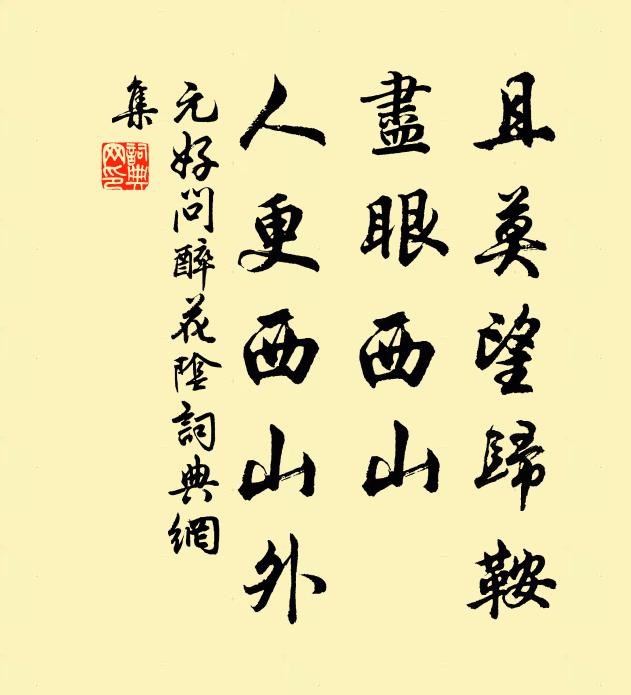 且莫望歸鞍
盡眼西山
人更西山外
元好問醉花陰詞典網
集
詞典網印